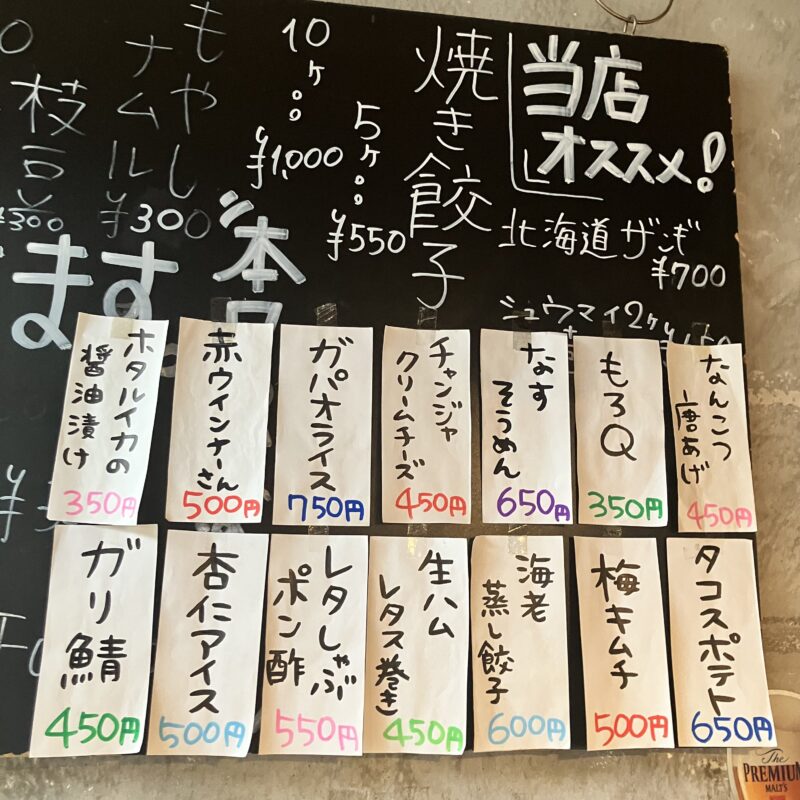 当店
オススメ!
北海道ザンギ
¥700
シュウマイ2ヶ
焼き餃子
5ヶ。。
¥550
10
ヶ。。
¥1,000
もやし
ナムル
¥300
枝豆
¥300
ます。
本日
なんこつ
唐あげ
450円
もろQ
350円
なす
そうめん
650円
チャンジャ
クリームチーズ
450円
ガパオライス
750円
赤ウインナーさん
500円
ホタルイカの
醤油漬け
350円
タコスポテト
650円
梅キムチ
500円
海老
蒸し餃子
600円
生ハム
レタス巻き
450円
レタしゃぶ
ポン酢
550円
杏仁アイス
500円
ガリ鯖
450円
The
PREMIUM
MALT'S